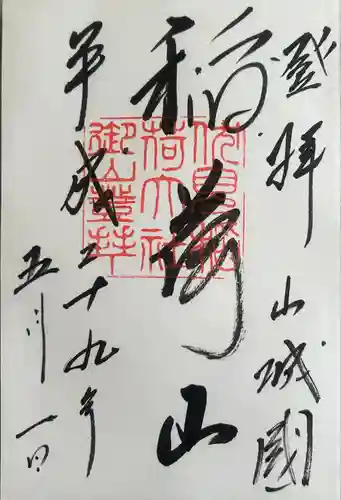 登拝 山城國
稲荷山
平成二十九年
五月一日
伏見稲
荷大社
御山登拝